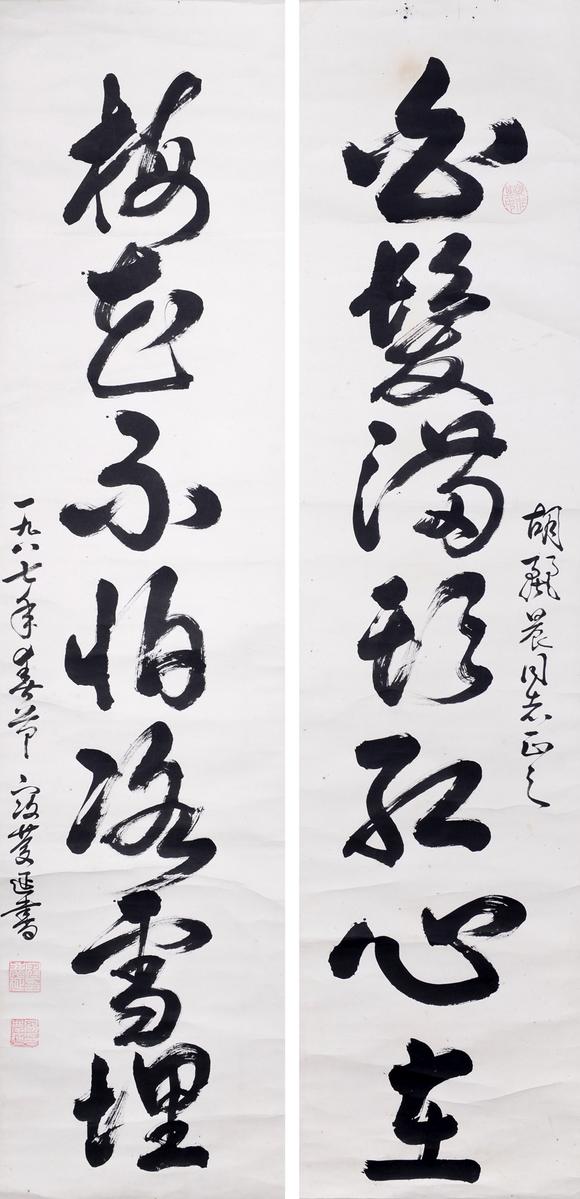 胡 晨同志正之
白髮滿頭紅心在
梅花不怕 雪埋
一九八七年春节 寇慶延書